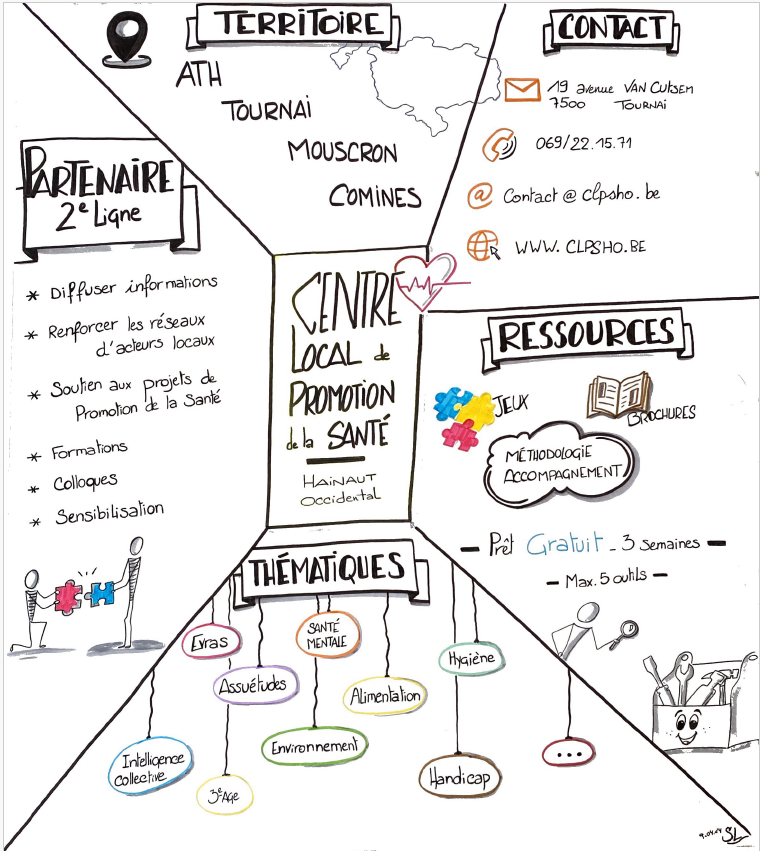 TERRITOIRE
ATH
TOURNAI
MOUSCRON
COMINES
CONTACT
19 avenue VAN CUTSEM
7500 TOURNAI
069/22.15.71
Contact@clpsho.be
WWW.CLPSHO.BE
PARTENAIRE
2e Ligne
* Diffuser informations
* Renforcer les réseaux
d'acteurs locaux
* Soutien aux projets de
Promotion de la Santé
* Formations
* Colloques
* Sensibilisation
CENTRE
LOCAL de
PROMOTION
de la SANTÉ
HAINAUT
Occidental
RESSOURCES
JEUX
BROCHURES
MÉTHODOLOGIE
ACCOMPAGNEMENT
- Prêt Gratuit - 3 semaines -
- Max. 5 outils -
THÉMATIQUES
Evras
SANTÉ
MENTALE
Hygiène
Assuétudes
Alimentation
Environnement
Intelligence
collective
3e Age
Handicap
...
SL